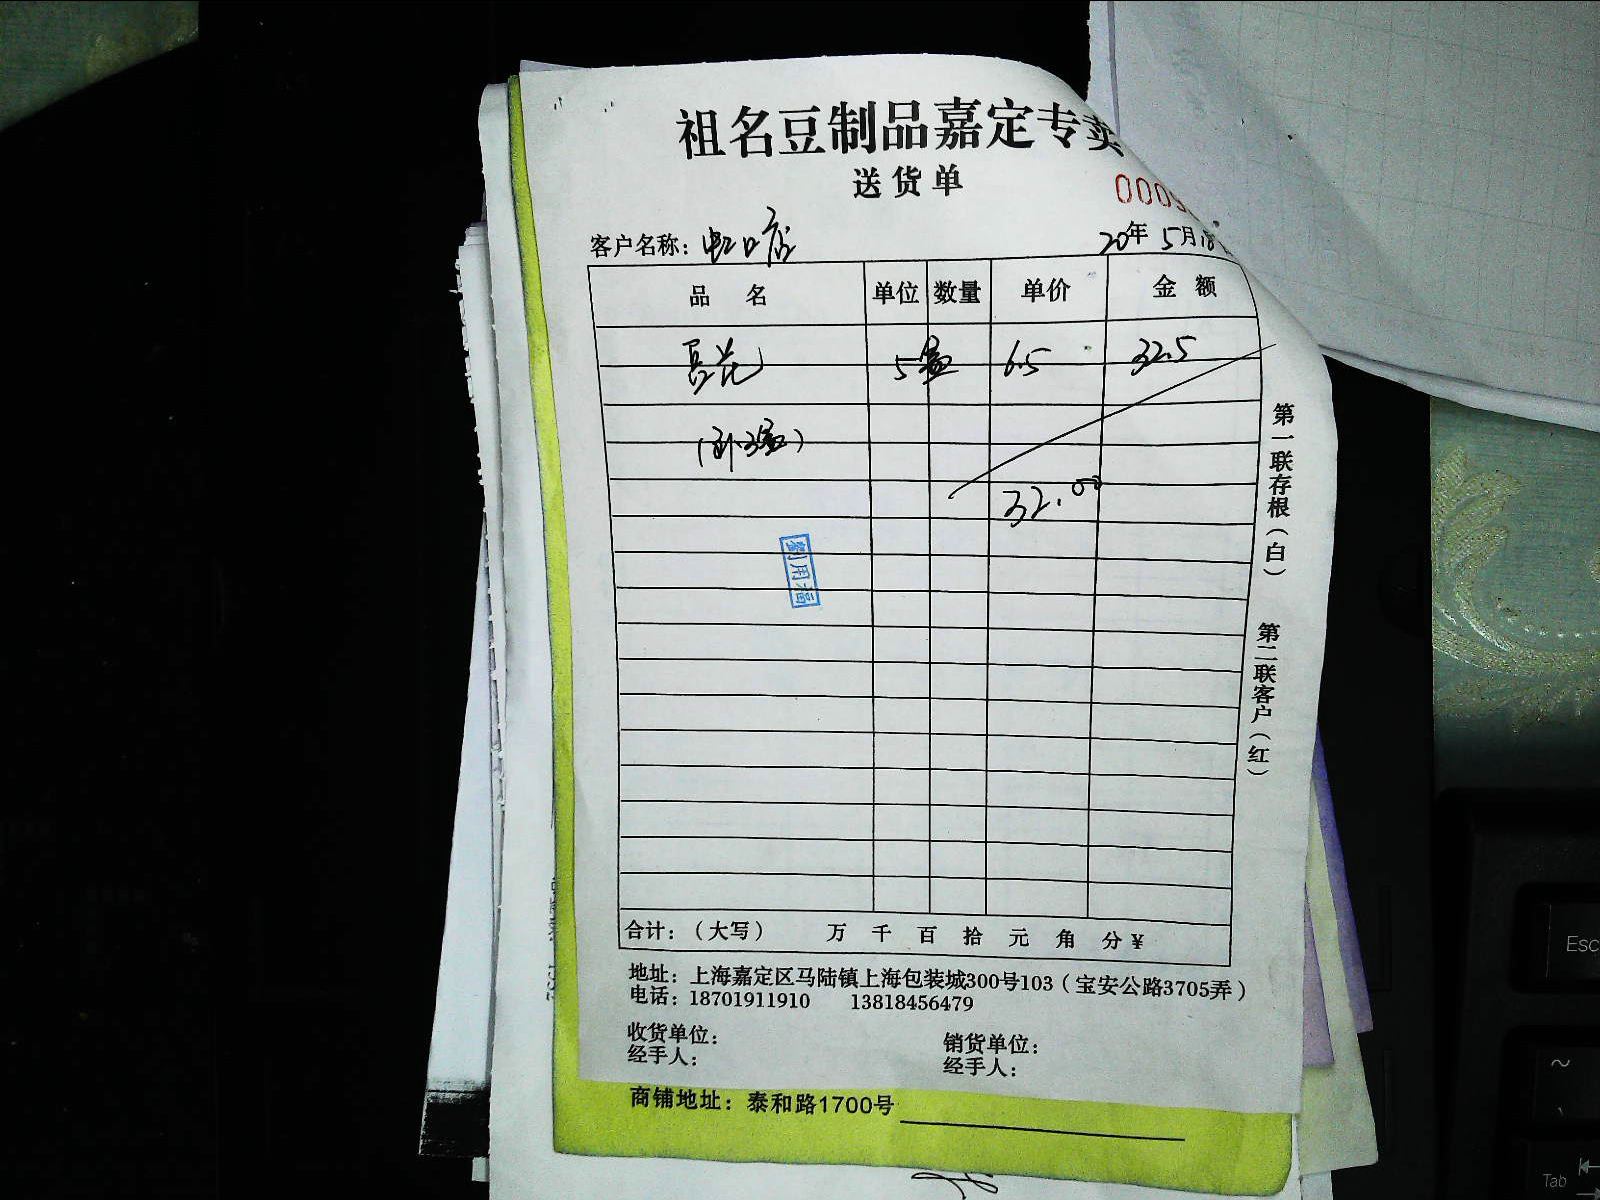 祖名豆制品嘉定专卖
送货单
0009
客户名称：虹口店
20年 5月18
品 名 单位 数量 单价 金 额
豆花 5盒 6.5 32.5
(补3盒)
32.00
刘用福
第一联存根（白） 第二联客户（红）
合计：（大写） 万 千 百 拾 元 角 分￥
地址：上海嘉定区马陆镇上海包装城300号103（宝安公路3705弄）
电话：18701911910 13818456479
收货单位： 销货单位：
经手人： 经手人：
商铺地址：泰和路1700号
Esc
~
Tab